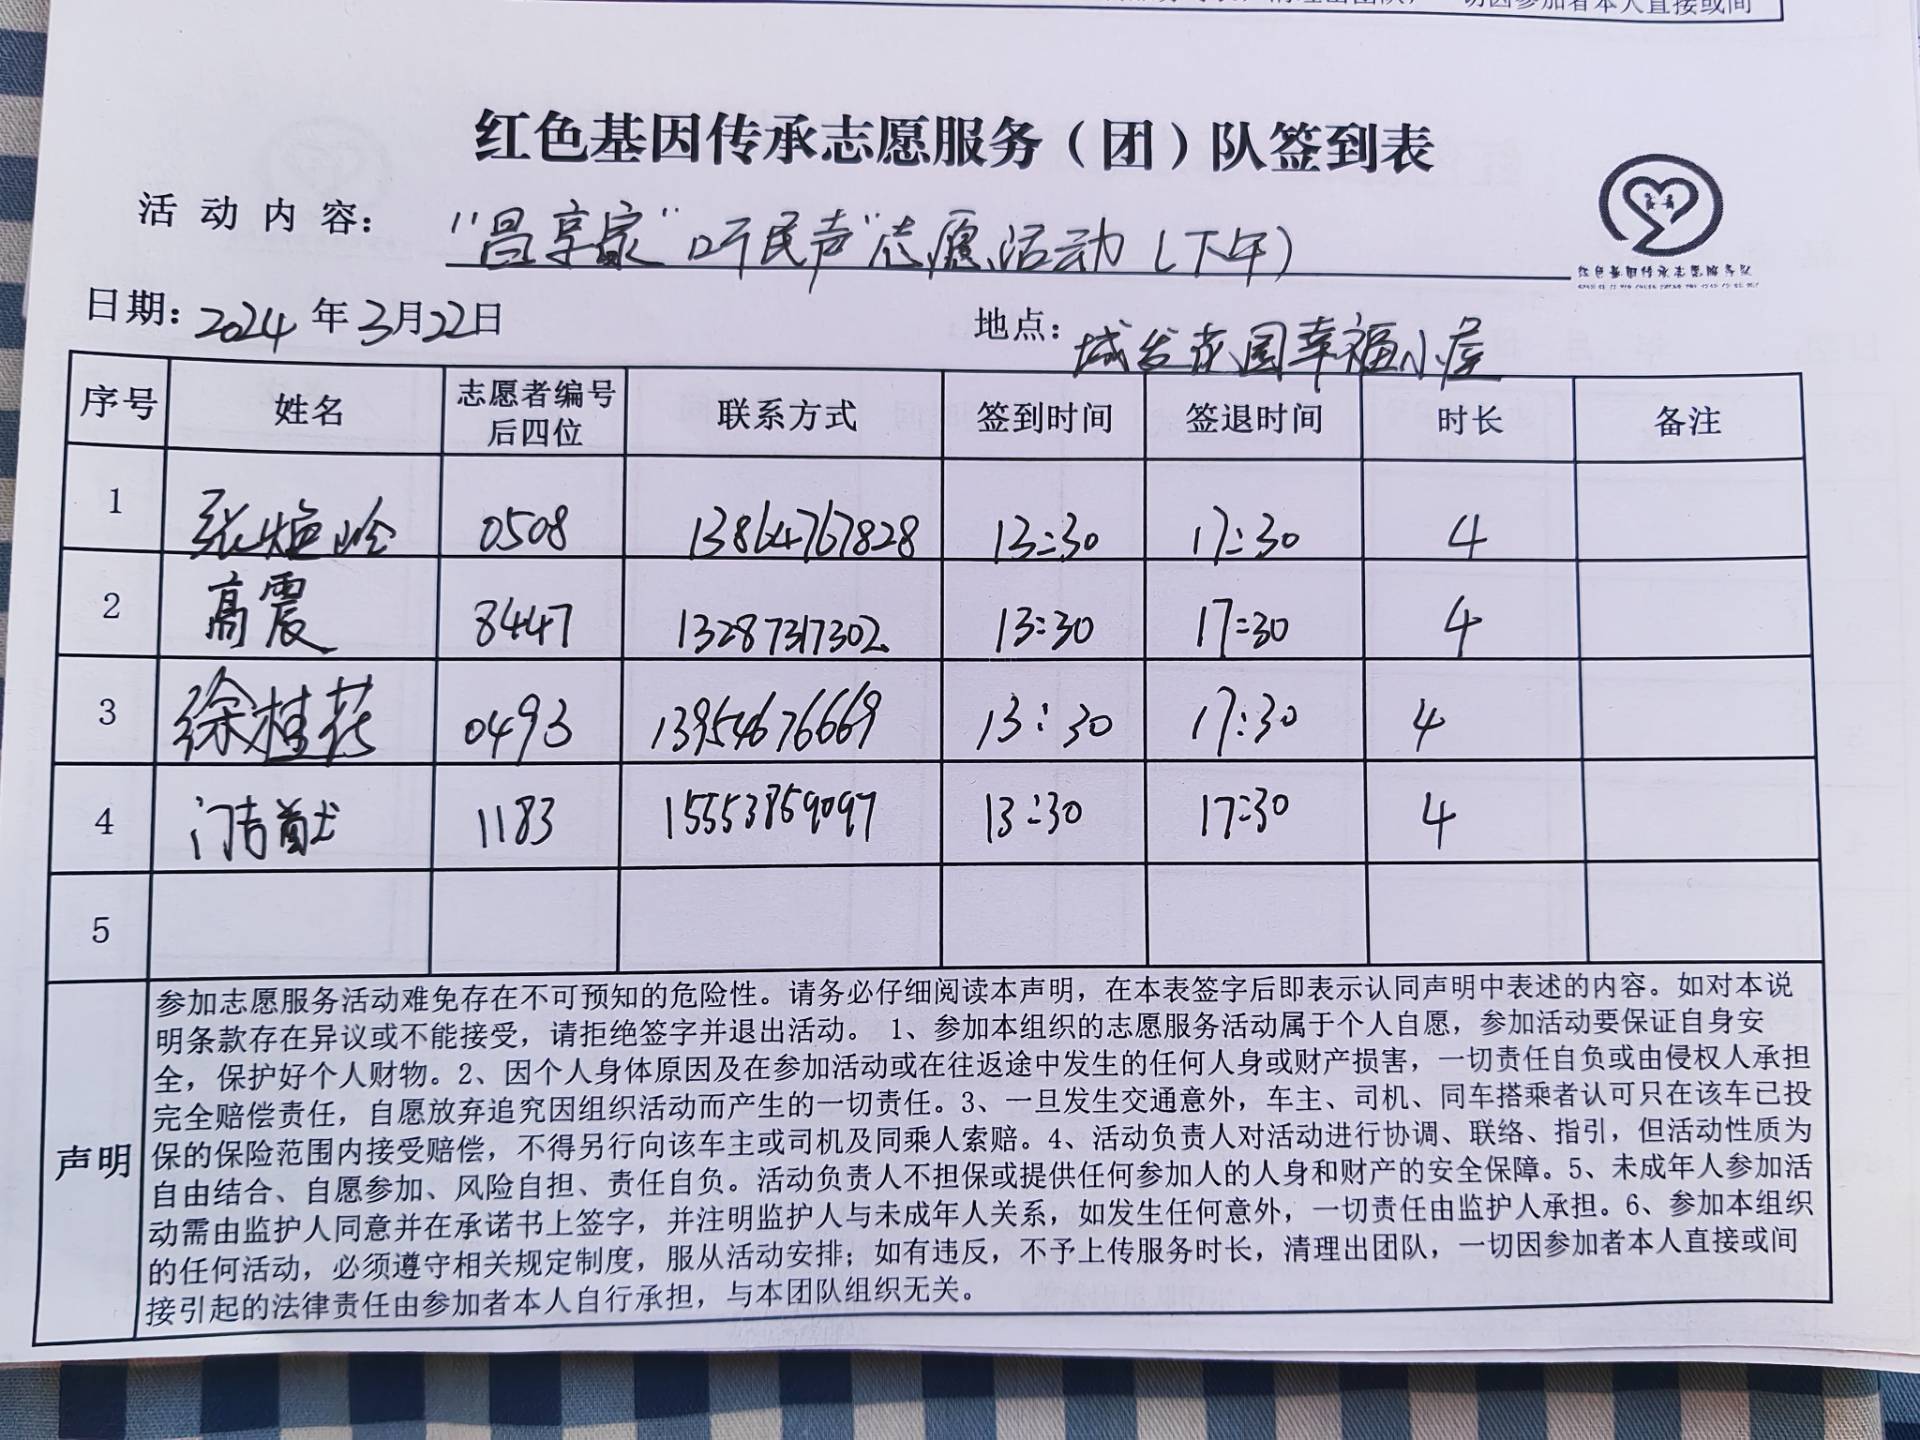 一切因参加者本人直接或间
红色基因传承志愿服务（团）队签到表
活动内容：“昌享家”听民声”志愿活动（下午）
红色基因传承志愿服务队
日期：2024年3月22日 地点：城发花园幸福小屋
序号 姓名 志愿者编号后四位 联系方式 签到时间 签退时间 时长 备注
1 张 0508 13864767828 13:30 17:30 4
2 高震 8447 13287317302 13:30 17:30 4
3 徐桂花 0493 13954676669 13:30 17:30 4
4 1183 15553859097 13:30 17:30 4
5
声明
参加志愿服务活动难免存在不可预知的危险性。请务必仔细阅读本声明，在本表签字后即表示认同声明中表述的内容。如对本说
明条款存在异议或不能接受，请拒绝签字并退出活动。 1、参加本组织的志愿服务活动属于个人自愿，参加活动要保证自身安
全，保护好个人财物。2、因个人身体原因及在参加活动或在往返途中发生的任何人身或财产损害，一切责任自负或由侵权人承担
完全赔偿责任，自愿放弃追究因组织活动而产生的一切责任。3、一旦发生交通意外，车主、司机、同车搭乘者认可只在该车已投
保的保险范围内接受赔偿，不得另行向该车主或司机及同乘人索赔。4、活动负责人对活动进行协调、联络、指引，但活动性质为
自由结合、自愿参加、风险自担、责任自负。活动负责人不担保或提供任何参加人的人身和财产的安全保障。5、未成年人参加活
动需由监护人同意并在承诺书上签字，并注明监护人与未成年人关系，如发生任何意外，一切责任由监护人承担。6、参加本组织
的任何活动，必须遵守相关规定制度，服从活动安排；如有违反，不予上传服务时长，清理出团队，一切因参加者本人直接或间
接引起的法律责任由参加者本人自行承担，与本团队组织无关。